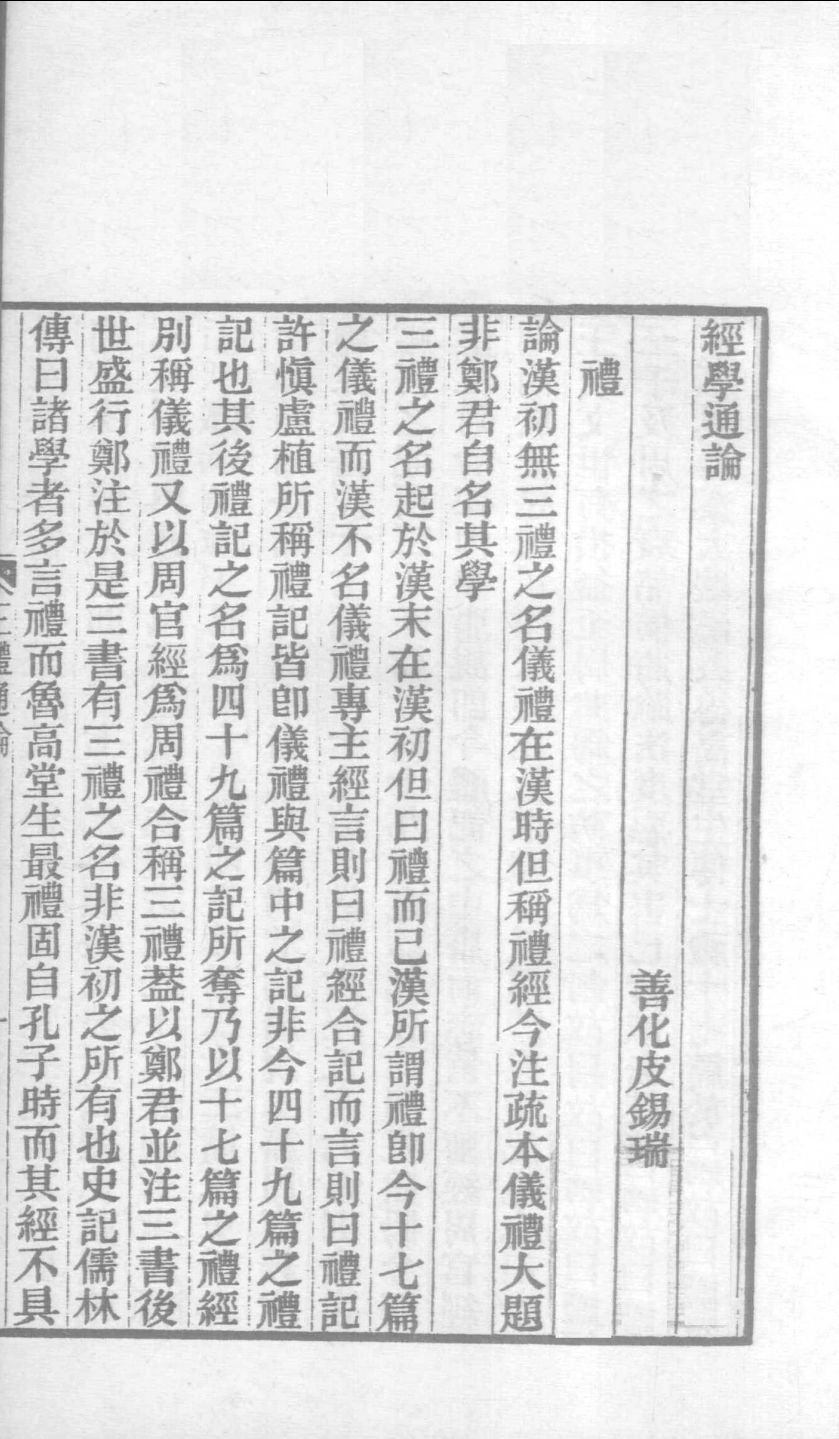 經學通論
善化皮錫瑞
禮
論漢初無三禮之名儀禮在漢時但稱禮經今注疏本儀禮大題
非鄭君自名其學
三禮之名起於漢末在漢初但曰禮而已漢所謂禮卽今十七篇
之儀禮而漢不名儀禮專主經言則曰禮經合記而言則曰禮記
許愼盧植所稱禮記皆卽儀禮與篇中之記非今四十九篇之禮
記也其後禮記之名爲四十九篇之記所奪乃以十七篇之禮經
別稱儀禮又以周官經爲周禮合稱三禮葢以鄭君並注三書後
世盛行鄭注於是三書有三禮之名非漢初之所有也史記儒林
傳曰諸學者多言禮而魯高堂生最禮固自孔子時而其經不具